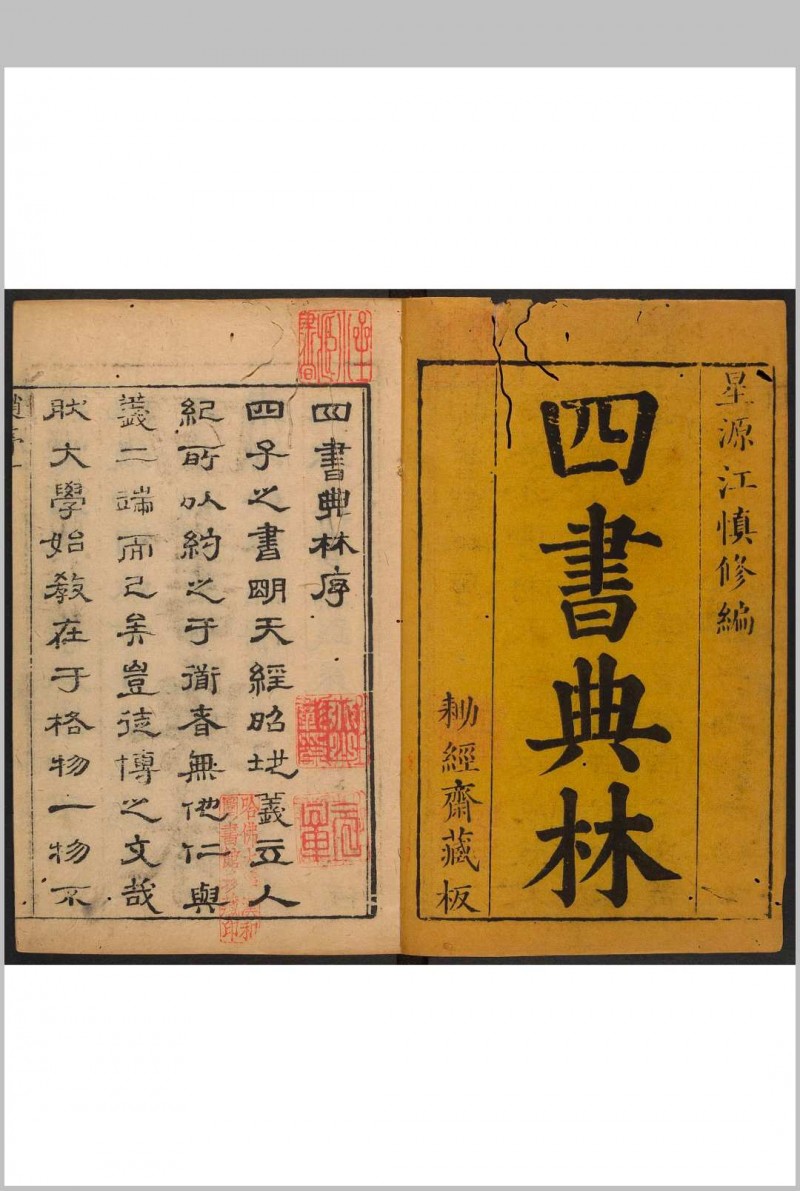 星源江慎修編
四書典林
耡經齋藏板
四書典林序
四子之書明天經昭地義立人
紀所以約之于衜者無他仁與
義二端而已矣豈徒博之文哉
肰大學始教在于格物一物不